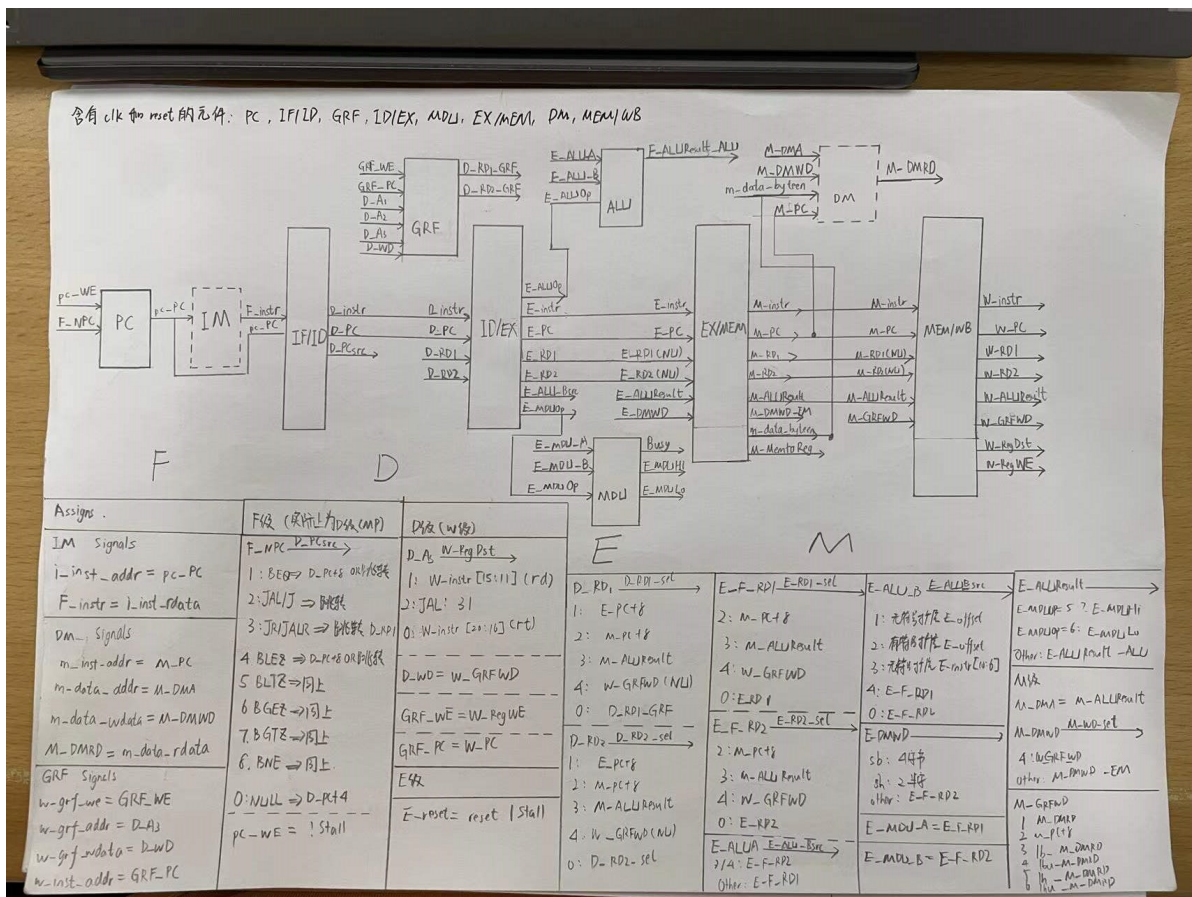 含有 clk 和 reset 的元件: PC, IF/ID, GRF, ID/EX, MDU, EX/MEM, DM, MEM/WB
GRF_WE
GRF_PC
D_A1
D_A2
D_A3
D_WD
GRF
D_RD1_GRF
D_RD2_GRF
E_ALUA
E_ALU_B
E_ALUOp
ALU
E_ALUResult_ALU
M_DMA
M_DMWD
m_data_byteen
M_PC
DM
M_DMRD
pc_WE
F_NPC
PC
pc_PC
IM
F_instr
pc_PC
IF/ID
D_instr
D_PC
D_PCsrc
D_instr
D_PC
D_RD1
D_RD2
ID/EX
E_ALUOp
E_instr
E_PC
E_RD1
E_RD2
E_ALU_Bsrc
E_MDUOp
E_instr
E_PC
E_RD1(NU)
E_RD2(NU)
E_ALUResult
E_DMWD
EX/MEM
M_instr
M_PC
M_RD1
M_RD2
M_ALUResult
M_DMWD_EM
m_data_byteen
M_MemtoReg
M_instr
M_PC
M_RD1(NU)
M_ALUResult
M_GRFWD
MEM/WB
W_instr
W_PC
W_RD1
W_RD2
W_ALUResult
W_GRFWD
W_RegDst
W_RegWE
E_MDU_A
E_MDU_B
E_MDUOp
MDU
Busy
E_MDUHI
E_MDULo
F
D
E
M
Assigns.
IM Signals
i_inst_addr = pc_PC
F_instr = i_inst_rdata
Dm_. Signals
m_inst_addr = M_PC
m_data_addr = M_DMA
m_data_wdata = M_DMWD
M_DMRD = m_data_rdata
GRF Signals
w_grf_we = GRF_WE
w_grf_addr = D_A3
w_grf_wdata = D_WD
w_inst_addr = GRF_PC
F级 (实际上为D级CMP)
F_NPC D_PCsrc
1: BEQ⇒ D_PC+8 OR
2: JAL/J ⇒
3: JR/JALR ⇒ D_RD1
4 BLEZ ⇒ D_PC+8 OR
5 BLTZ ⇒同上
6 BGEZ ⇒同上
7. BGTZ ⇒同上
8. BNE ⇒同上
0: NULL ⇒ D_PC+4
pc_WE = !Stall
D级 (W级)
D_A3 W_RegDst
1: W_instr [15:11] (rd)
2: JAL: 31
0: W_instr [20:16] (rt)
D_WD = W_GRFWD
GRF_WE = W_RegWE
GRF_PC = W_PC
E级
E_reset = reset | Stall
D_RD1 D_RD1_sel
1: E_PC+8
2: M_PC+8
3: M_ALUResult
4: W_GRFWD (NU)
0: D_RD1_GRF
D_RD2 D_RD2_sel
1: E_PC+8
2: M_PC+8
3: M_ALUResult
4. W_GRFWD(NU)
0: D_RD2_sel
E_F_RD1 E_RD1_sel
2: M_PC+8
3: M_ALUResult
4: W_GRFWD
0: E_RD1
E_F_RD2 E_RD2_sel
2: M_PC+8
3: M_ALUResult
4: W_GRFWD
0: E_RD2
E_ALUA E_ALU_Bsrc
3/4: E_F_RD2
Other: E_F_RD1
E_ALU_B E_ALUBsrc
1: 无符号扩展 E_offset
2: 有符号扩展 E_offset
3: 无符号扩展 E_instr[10:6]
4: E_F_RD1
0: E_F_RD2
E_DMWD
sb: 4字节
sh: 2半字
other: E_F_RD2
E_MDU_A = E_F_RD1
E_MDU_B = E_F_RD2
E_ALUResult
E_MDUOp = 5 ?. E_MDUHI
E_MDUOp = 6: E_MDULo
Other: E_ALUResult_ALU
M级
M_DMA = M_ALUResult
M_DMWD M_WD_sel
4: W_GRFWD
Other: M_DMWD_EM
M_GRFWD
1 M_DMRD
2 M_PC+8
3 lb_M_DMRD
4 lbu_M_DMRD
5 lh_M_DMRD
6 lhu_M_DMRD